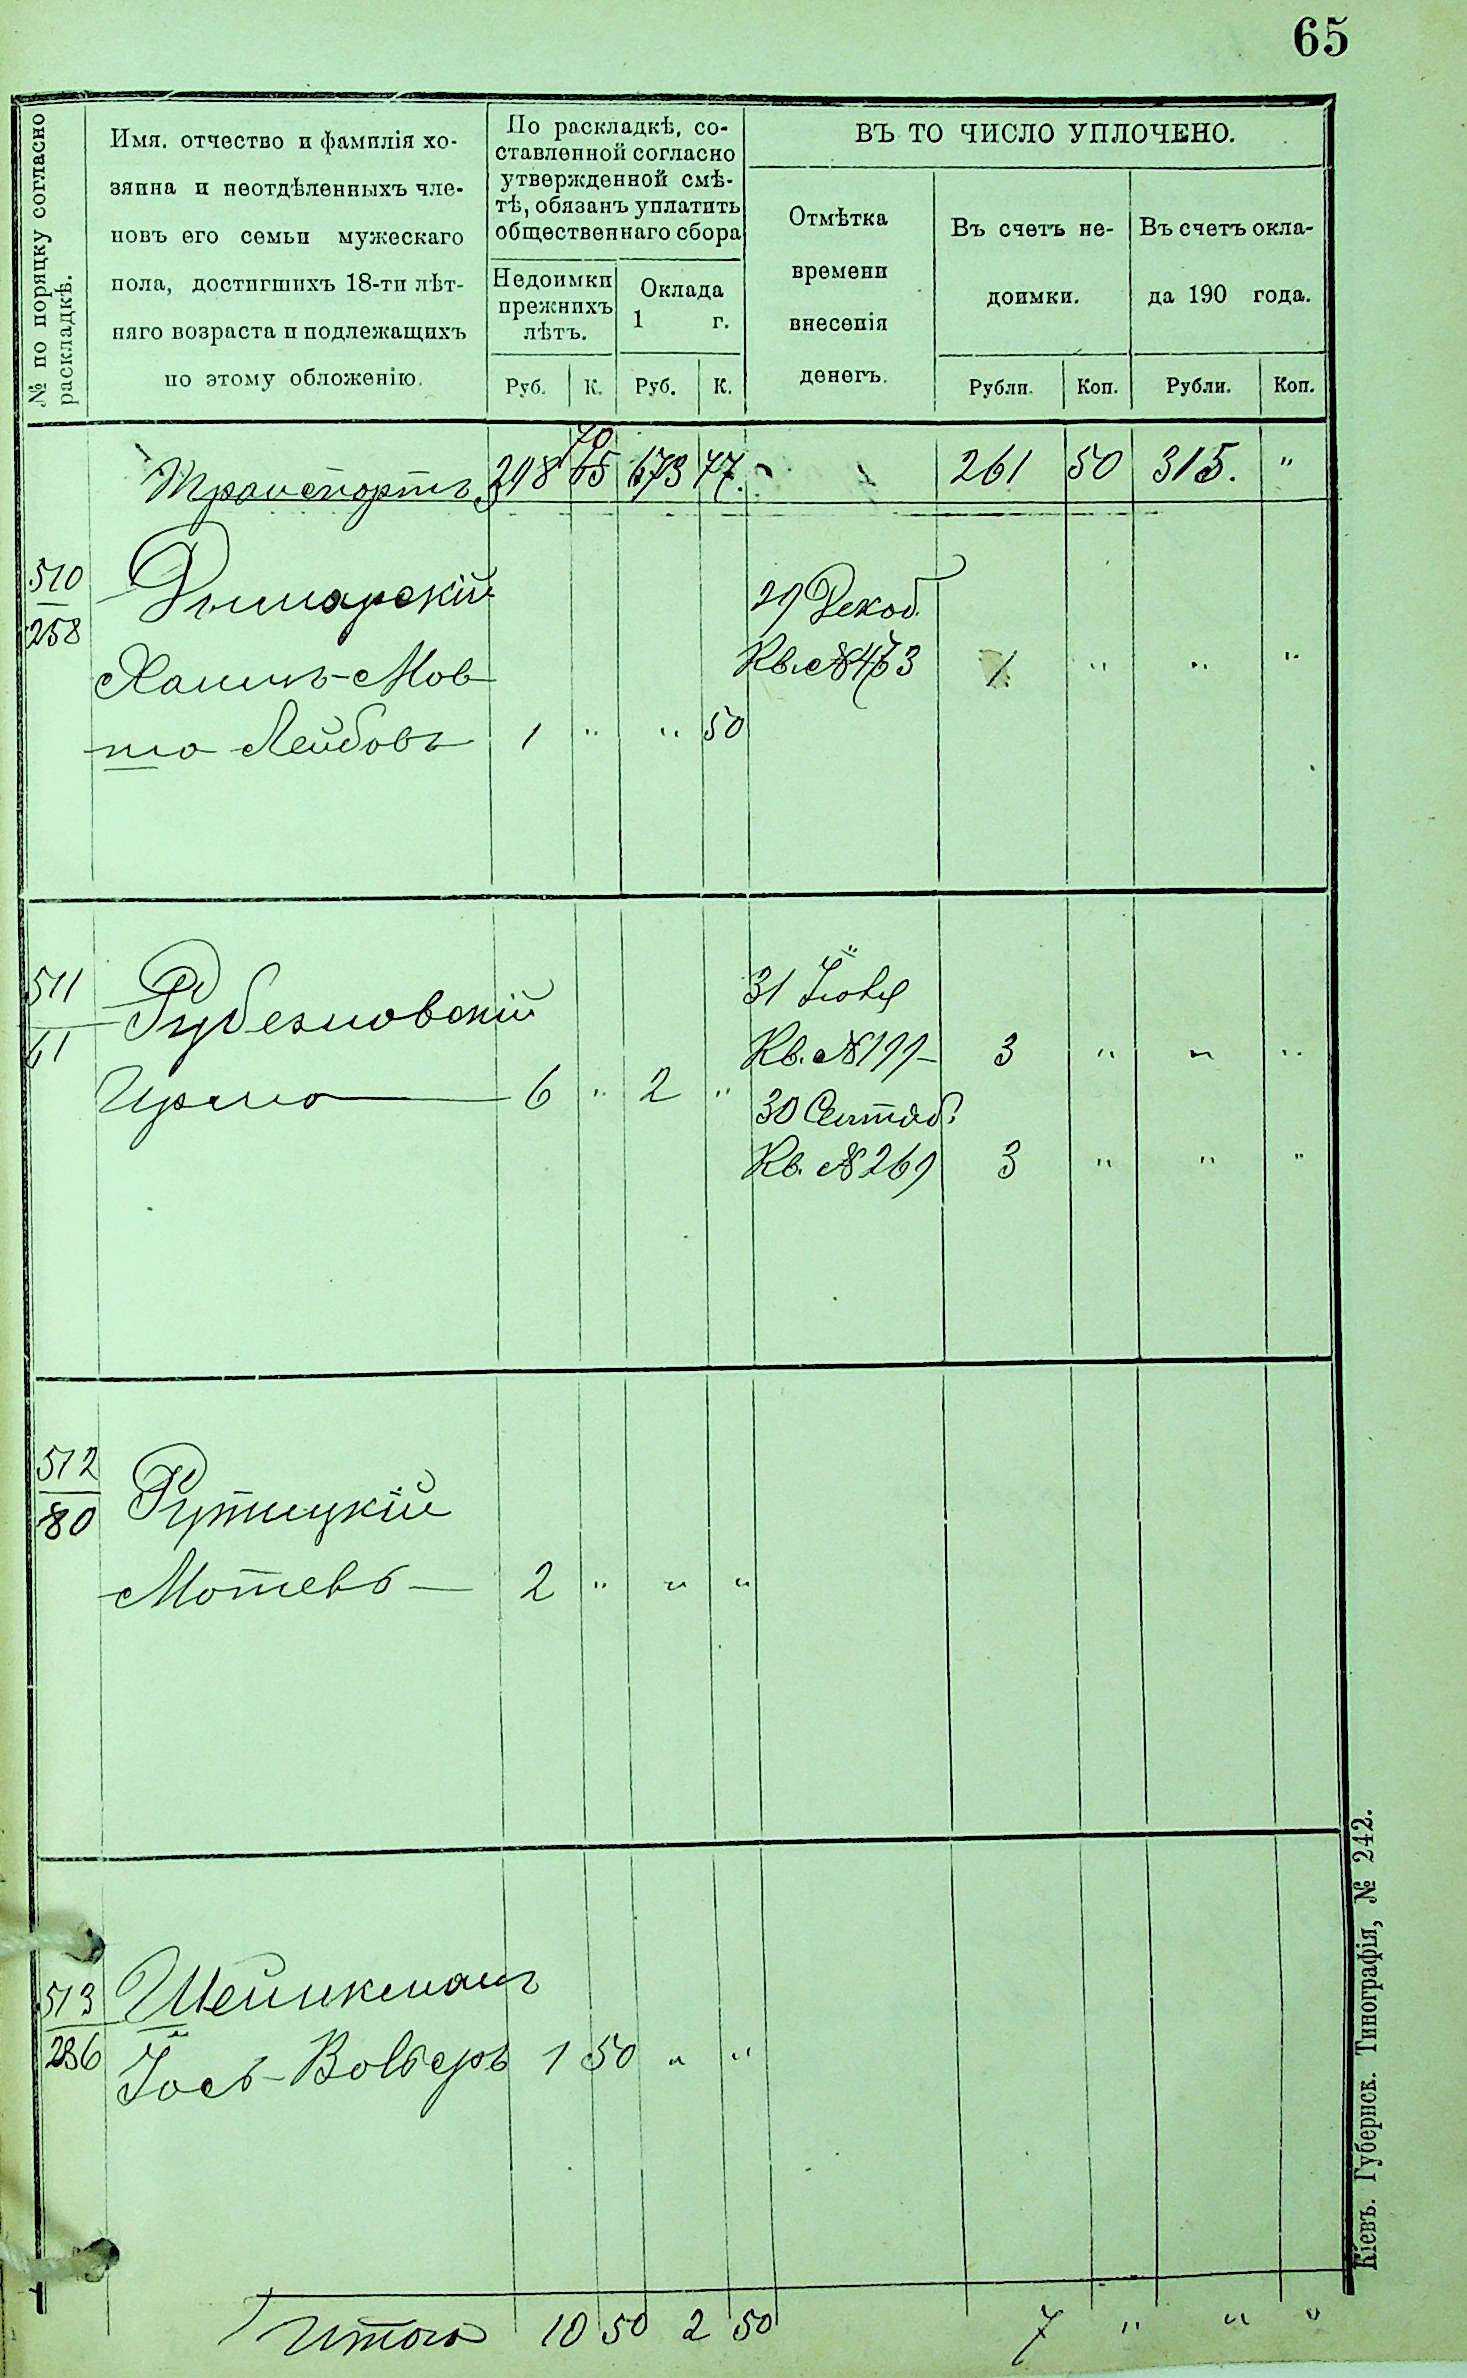 65
№ по порядку согласно
раскладкѣ.
Имя, отчество и фамилія хо-
зяина и неотдѣленныхъ чле-
новъ его семьи мужескаго
пола, достигшихъ 18-ти лѣт-
няго возраста и подлежащихъ
по этому обложенію.
По раскладкѣ, со-
ставленной согласно
утвержденной смѣ-
тѣ, обязанъ уплатить
общественнаго сбора
Недоимки
прежнихъ
лѣтъ.
Оклада
1 г.
Руб. К. Руб. К.
ВЪ ТО ЧИСЛО УПЛОЧЕНО.
Отмѣтка
времени
внесенія
денегъ.
Въ счетъ не-
доимки.
Въ счетъ окла-
да 190 года.
Рубли. Коп. Рубли. Коп.
70
Транспортъ 65 673 77. 261 50 315. "
510
258
Рымарскій
Хаимъ-Мов-
ша Лейбовъ 1 " " 50
29 Декаб.
Кв. № 1 " " "
511
61
Рубежовскій
6 " 2 "
31
Кв. № 199 3 " " "
30 Сентяб.
Кв. № 269 3 " " "
512
80
Рутицкій
Мошевъ 2 " " "
513
236
Шейнкманъ
Іось-Вольфъ 1 50 " "
Итого 10 50 2 50 7 " " "
Кіевъ. Губернск. Типографія, № 242.